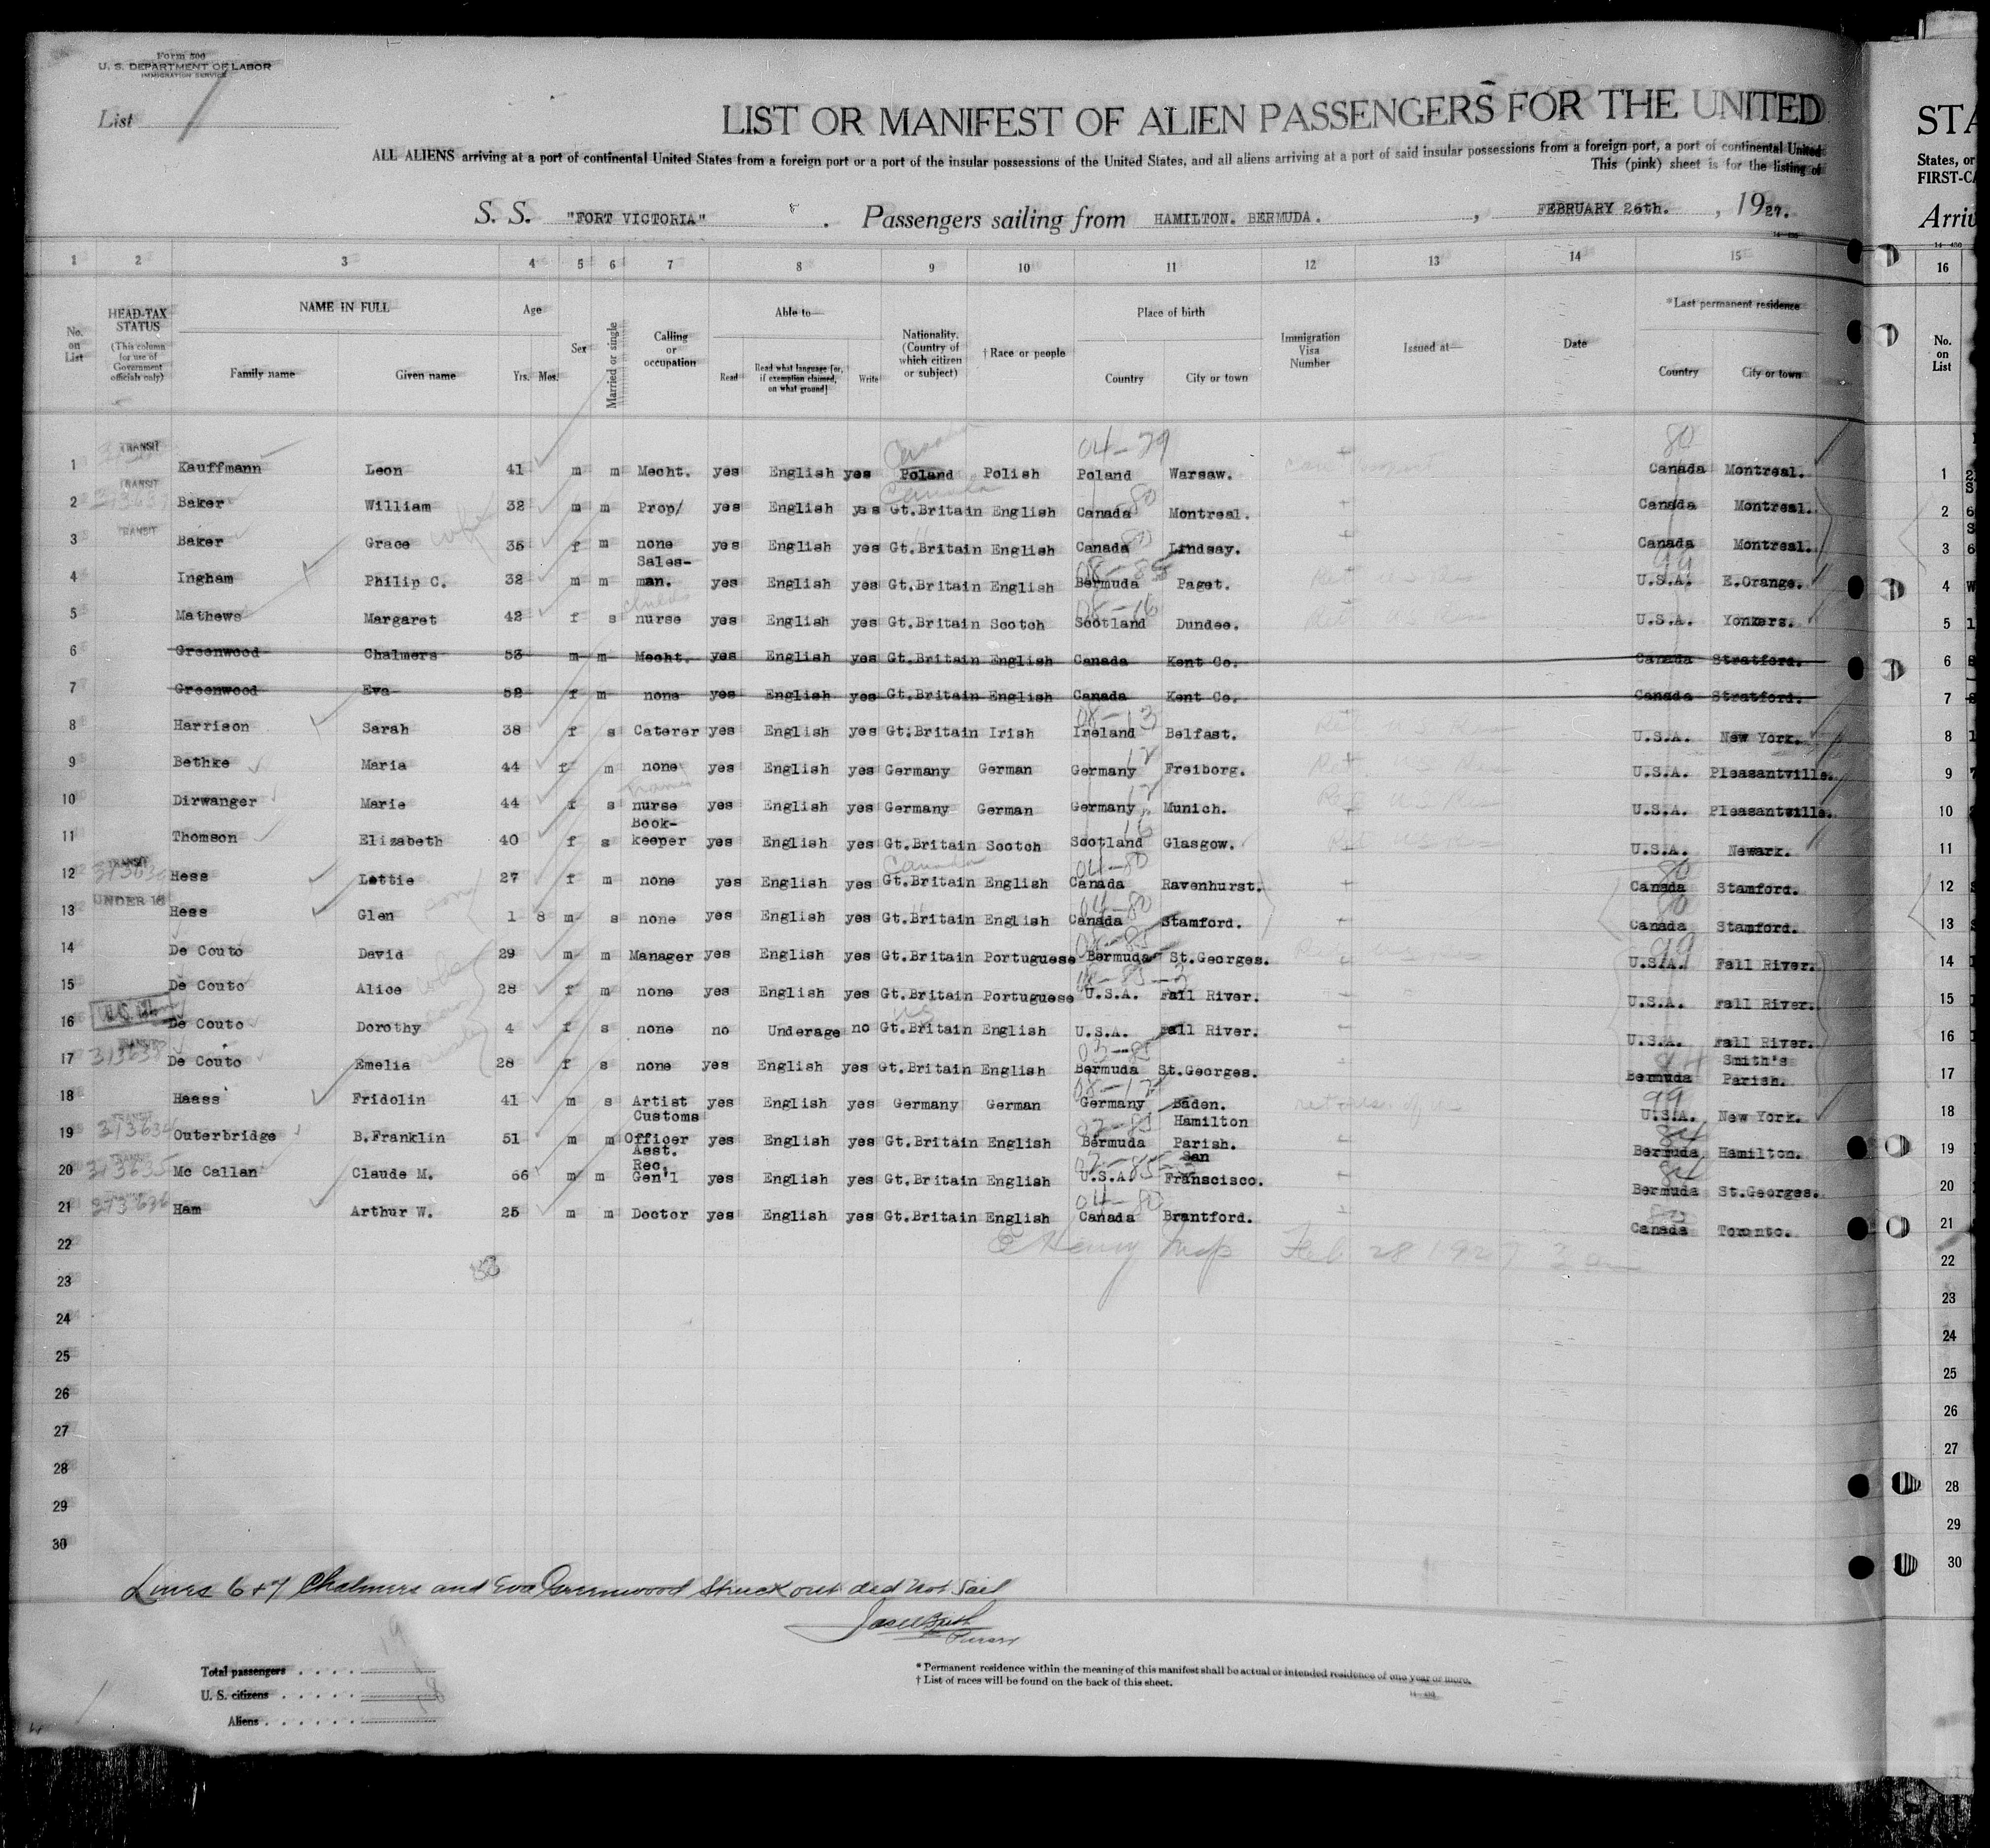 Form 500
U. S. DEPARTMENT OF LABOR
IMMIGRATION SERVICE
List 1
LIST OR MANIFEST OF ALIEN PASSENGERS FOR THE UNITED
STA
ALL ALIENS arriving at a port of continental United States from a foreign port or a port of the insular possessions of the United States, and all aliens arriving at a port of said insular possessions from a foreign port, a port of continental United
States, or
This (pink) sheet is for the listing of
FIRST-CA
S. S. "FORT VICTORIA" . Passengers sailing from HAMILTON. BERMUDA. , FEBRUARY 26th. , 1927.
Arriv
1 2 3 4 5 6 7 8 9 10 11 12 13 14 15 16
No. on List
HEAD-TAX STATUS (This column for use of Government officials only)
NAME IN FULL Family name Given name
Age Yrs. Mos.
Sex
Married or single
Calling or occupation
Able to— Read Read what language [or, if exemption claimed, on what ground] Write
Nationality. (Country of which citizen or subject)
† Race or people
Place of birth Country City or town
Immigration Visa Number
Issued at—
Date
*Last permanent residence Country City or town
No. on List
1 TRANSIT Kauffmann Leon 41 m m Mecht. yes English yes Canada Poland Polish 04-79 Poland Warsaw. 80 Canada Montreal. 1
2 TRANSIT Baker William 32 m m Prop/ yes English yes Canada Gt.Britain English 80 Canada Montreal. Canada Montreal. 2
3 TRANSIT Baker Grace wife 35 f m none yes English yes Gt.Britain English 80 Canada Lindsay. Canada Montreal. 3
4 Ingham Philip C. 32 m m Sales-man. yes English yes Gt.Britain English 08-85 Bermuda Paget. 99 U.S.A. E.Orange. 4
5 Mathews Margaret 42 f s childs nurse yes English yes Gt.Britain Scotch 08-16 Scotland Dundee. Ret U S Res U.S.A. Yonkers. 5
6 Greenwood Chalmers 53 m m Mecht. yes English yes Gt.Britain English Canada Kent Co. Canada Stratford. 6
7 Greenwood Eva 52 f m none yes English yes Gt.Britain English Canada Kent Co. Canada Stratford. 7
8 Harrison Sarah 38 f s Caterer yes English yes Gt.Britain Irish 08-13 Ireland Belfast. Ret U S Res U.S.A. New York. 8
9 Bethke Maria 44 f m none yes English yes Germany German 12 Germany Freiborg. Ret U S Res U.S.A. Pleasantville. 9
10 Dirwanger Marie 44 f s nurse yes English yes Germany German 12 Germany Munich. Ret U S Res U.S.A. Pleasantville. 10
11 Thomson Elizabeth 40 f s Book-keeper yes English yes Gt.Britain Scotch 16 Scotland Glasgow. Ret U S Res U.S.A. Newark. 11
12 TRANSIT Hess Lettie 27 f m none yes English yes Canada Gt.Britain English 04-80 Canada Ravenhurst. 80 Canada Stamford. 12
13 UNDER 16 Hess Glen son 1 8 m s none yes English yes Gt.Britain English 04-80 Canada Stamford. 80 Canada Stamford. 13
14 De Couto David 29 m m Manager yes English yes Gt.Britain Portuguese 08-85 Bermuda St.Georges. 99 U.S.A. Fall River. 14
15 De Couto Alice 28 f m none yes English yes Gt.Britain Portuguese U.S.A. Fall River. U.S.A. Fall River. 15
16 De Couto Dorothy 4 f s none no Underage no Gt.Britain English U.S.A. Fall River. U.S.A. Fall River. 16
17 TRANSIT De Couto Emelia 28 f s none yes English yes Gt.Britain English 03-85 Bermuda St.Georges. 84 Bermuda Smith's Parish. 17
18 Haass Fridolin 41 m s Artist yes English yes Germany German 08-12 Germany Baden. 99 U.S.A. New York. 18
19 313634 Outerbridge B.Franklin 51 m m Customs Officer yes English yes Gt.Britain English Bermuda Hamilton Parish. 84 Bermuda Hamilton. 19
20 313635 Mc Callan Claude M. 66 m m Asst. Rec. Gen'l yes English yes Gt.Britain English U.S.A. San Franscisco. 84 Bermuda St.Georges. 20
21 313636 Ham Arthur W. 25 m m Doctor yes English yes Gt.Britain English 04-80 Canada Brantford. Canada Toronto. 21
22 Henry Insp Feb 28 1927 22
23 23
24 24
25 25
26 26
27 27
28 28
29 29
30 30
Lines 6 + 7 Chalmers and Eva Greenwood Struck out did not Sail
Purser
Total passengers . . . . . 19
U. S. citizens . . . . . 1
Aliens . . . . . . 18
* Permanent residence within the meaning of this manifest shall be actual or intended residence of one year or more.
† List of races will be found on the back of this sheet.